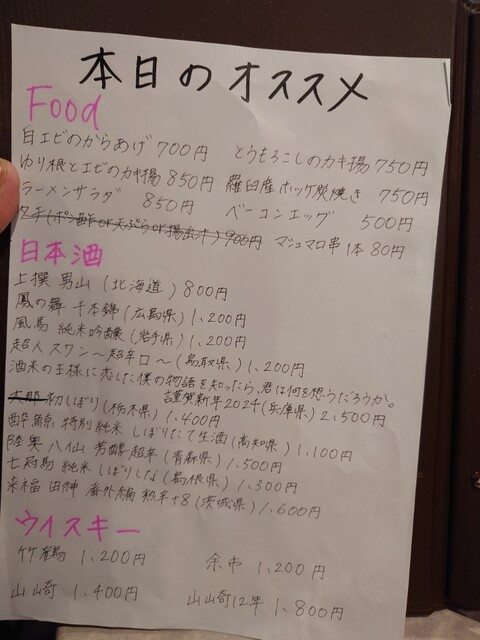 本日のオススメ
Food
白エビのからあげ 700円 とうもろこしのカキ揚 750円
ゆり根とエビのカキ揚 850円 羅臼産ホッケ炭焼き 750円
ラーメンサラダ 850円 ベーコンエッグ 500円
タチ(ポン酢or天ぷらor揚出オ) 900円 マシュマロ串 1本 80円
日本酒
上撰 男山 (北海道) 800円
鳳の舞 千本錦 (広島県) 1,200円
風馬 純米吟醸 (岩手県) 1,200円
超人 スワン〜超辛口〜 (鳥取県) 1,200円
酒米の王様に恋した僕の物語を知ったら、君は何を想うだろうか。
謹賀新年2024 (兵庫県) 2,500円
初しぼり (栃木県) 1,400円
酔鯨 特別純米 しぼりたて生酒 (高知県) 1,100円
陸奥 八仙 芳醇超辛 (青森県) 1,500円
七冠馬 純米 しぼりしな (島根県) 1,300円
来福 田神 番外編 熟辛+8 (茨城県) 1,600円
ウイスキー
竹鶴 1,200円 余市 1,200円
山崎 1,400円 山崎12年 1,800円